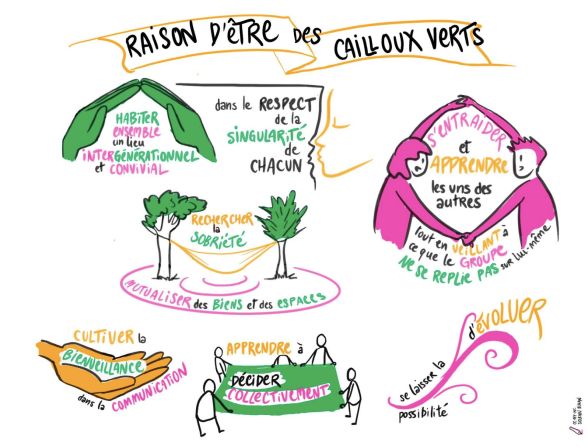 RAISON D'ÊTRE DES CAILLOUX VERTS
HABITER
ENSEMBLE
un lieu
INTERGÉNÉRATIONNEL
et CONVIVIAL
dans le RESPECT
de la
SINGULARITÉ
de
CHACUN
S'ENTRAIDER
et
APPRENDRE
les uns des
autres
tout en VEILLANT à
ce que le GROUPE
NE SE REPLIE PAS sur lui-même
RECHERCHER
la
SOBRIÉTÉ
MUTUALISER des BIENS et des ESPACES
CULTIVER la
BIENVEILLANCE
dans la COMMUNICATION
APPRENDRE à
DÉCIDER
COLLECTIVEMENT
se laisser la
possibilité
d'ÉVOLUER